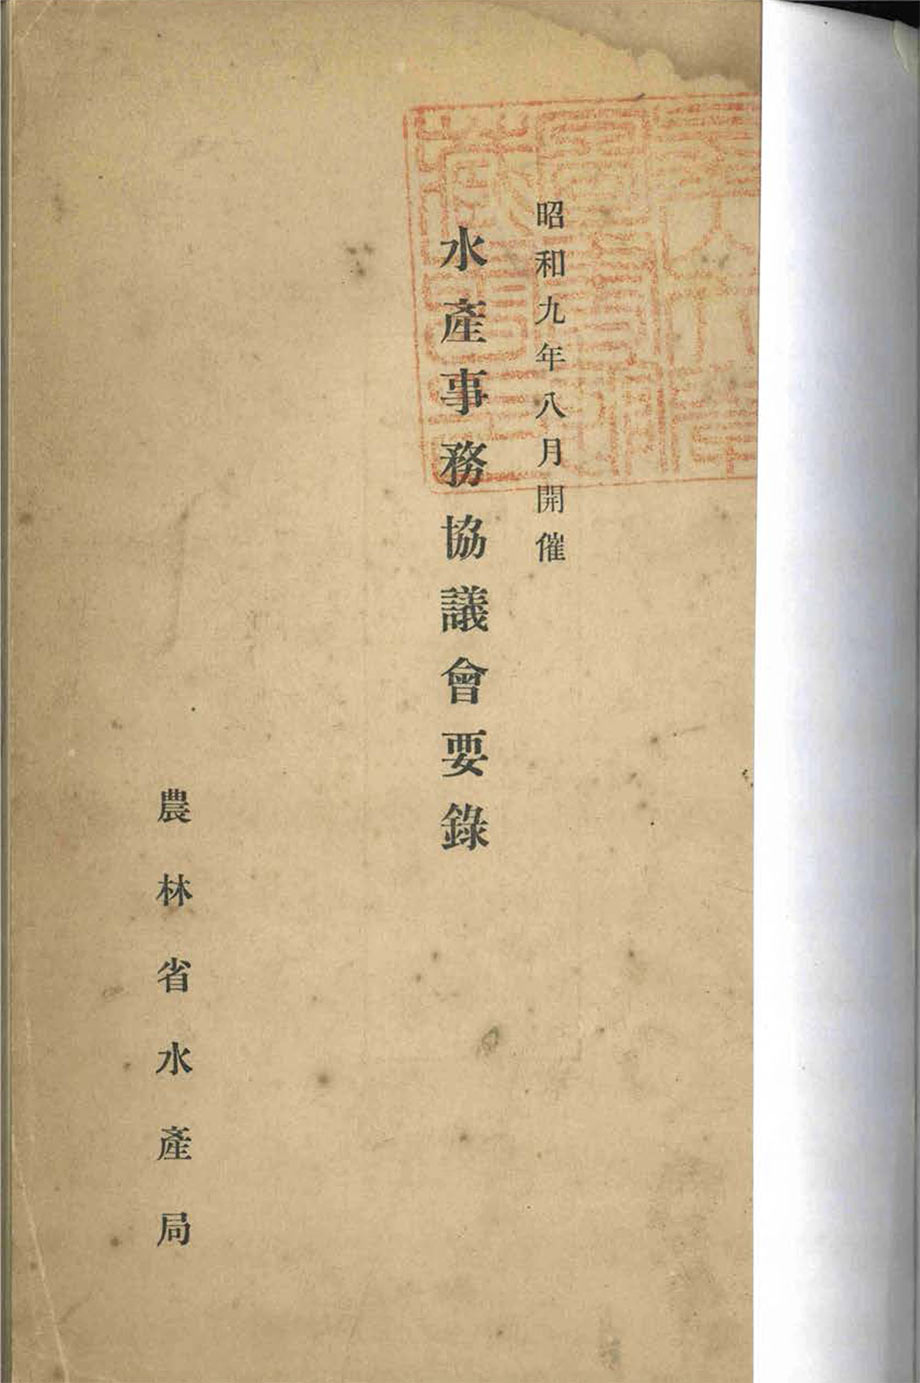 昭和九年八月開催
水產事務協議會要錄
農林省水產局